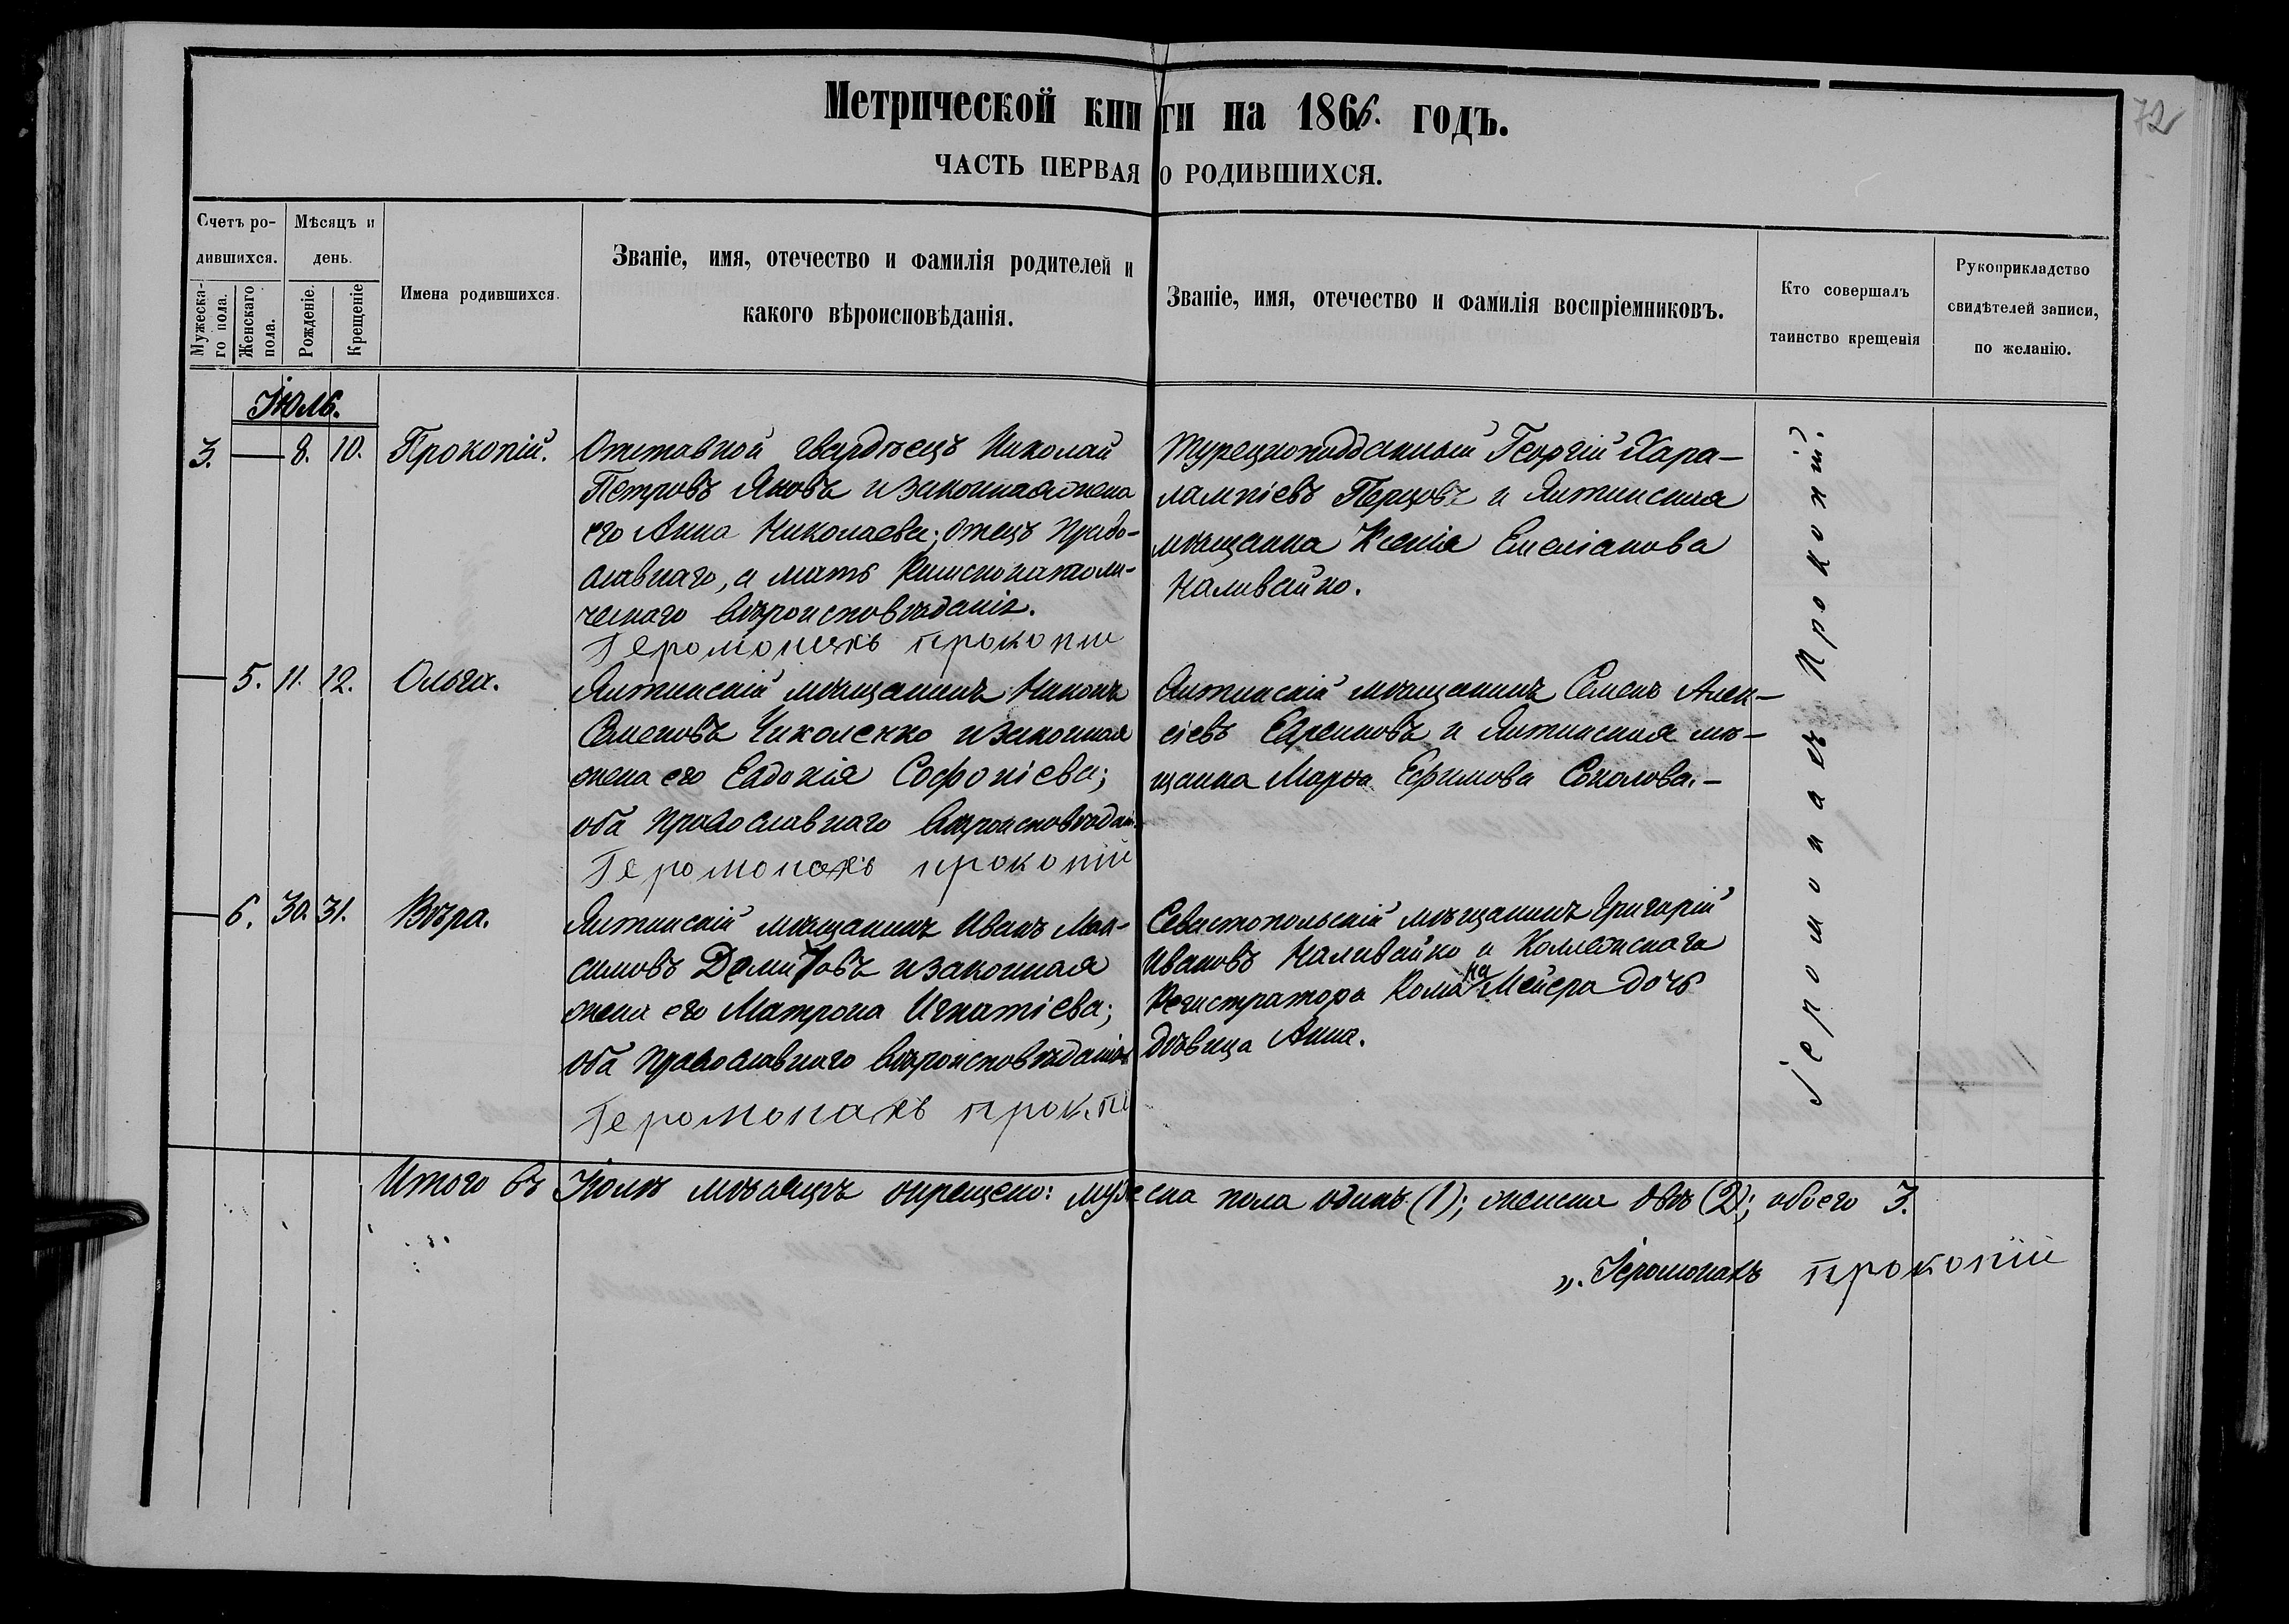 Метрической книги на 1866. годъ.
72
ЧАСТЬ ПЕРВАЯ О РОДИВШИХСЯ.
Счетъ ро-
дившихся.
Мужеска-
го пола.
Женскаго
пола.
Мѣсяцъ и
день.
Рожденіе.
Крещеніе
Имена родившихся.
Званіе, имя, отечество и фамилія родителей и
какого вѣроисповѣданія.
Званіе, имя, отечество и фамилія воспріемниковъ.
Кто совершалъ
таинство крещенія
Рукоприкладство
свидѣтелей записи,
по желанію.
Іюль.
3. — 8. 10. Прокопій.
Отставной гвардѣецъ Николай
Петровъ Яновъ и законная жена
его Анна Николаева; отецъ Право-
славнаго, а мать Римскокатоли-
ческаго вѣроисповѣданія.
Іеромонахъ прокопіи
Турецкоподданный Георгій Хара-
лампіевъ и Ялтинская
мѣщанка Ксенія Емеліанова
Наливайко.
— 5. 11. 12. Ольга.
Ялтинскій мѣщанинъ Никонъ
Семеновъ Чиколенко и законная
жена его Евдокія Софоніева;
оба Православнаго вѣроисповѣдан.
Іеромонахъ прокопіи
Ялтинскій мѣщанинъ Семенъ Алек-
сіевъ и Ялтинская мѣ-
щанка Марѳа Ефимова Соколова.-
— 6. 30. 31. Вѣра.
Ялтинскій мѣщанинъ Иванъ Мак-
симовъ и законная
жена его Матрона Игнатіева;
оба Православнаго вѣроисповѣданія
Іеромонахъ прокопі
Севастопольскій мѣщанинъ Григорій
Ивановъ Наливайко и Коллежскаго
Регистратора Романа Мейера дочь
дѣвица Анна.
Іеромонахъ Прокопій.
Итого въ Іюлѣ мѣсяцѣ окрещено: мужеска пола одинъ (1); женска двѣ (2); обоего 3.
„. Іеромонахъ прокопіи